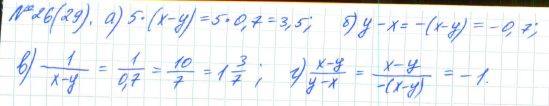 №26(29). а) 5·(x-y)=5·0,7=3,5; б) y-x=-(x-y)=-0,7;
в) 1/(x-y) = 1/0,7 = 10/7 = 1 3/7; г) (x-y)/(y-x) = (x-y)/(-(x-y)) = -1.